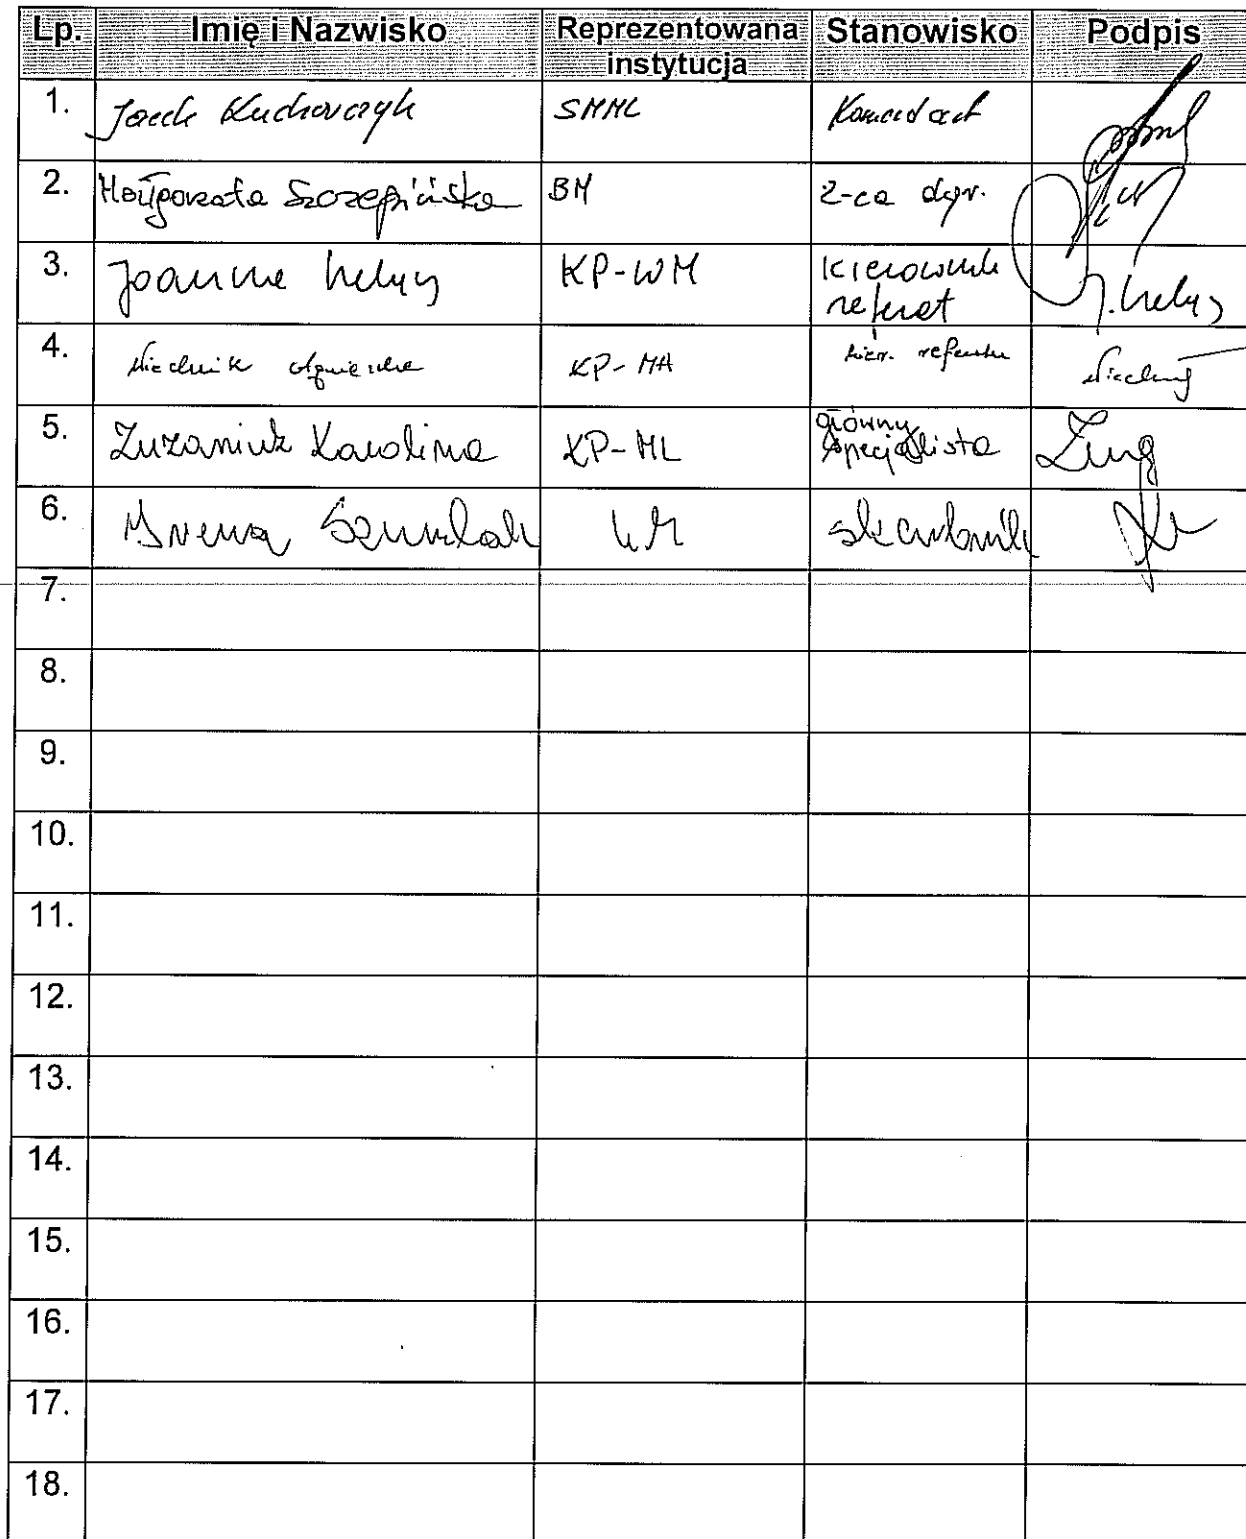 Lp. Imię i Nazwisko Reprezentowana instytucja Stanowisko Podpis
1. Jacek Kucharczyk SMML Komendant
2. Małgorzata Szczepińska BM z-ca dyr.
3. Joanna KP-WM kierownik referat
4. Niechnik Agnieszka KP-MA kier. referatu
5. Zuzaniuk Karolina KP-ML główny specjalista
6. Irena Szumlak UM skarbnik
7.
8.
9.
10.
11.
12.
13.
14.
15.
16.
17.
18.